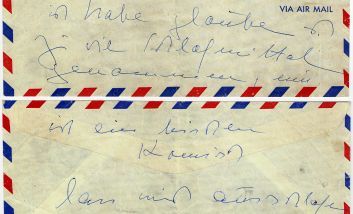 VIA AIR MAIL
ich habe glaube ich
zu viel Schlafmittel
genommen, mir
ist ein bisschen
Komisch
lass mich ausschlafen